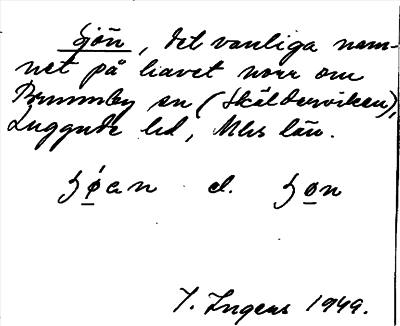 Sjön, det vanliga nam-
net på havet norr om
Brunnby sn (Skälderviken),
Luggude hd, Mlhs län.
ʃø̀an el. ʃøn
I. Ingers 1949.